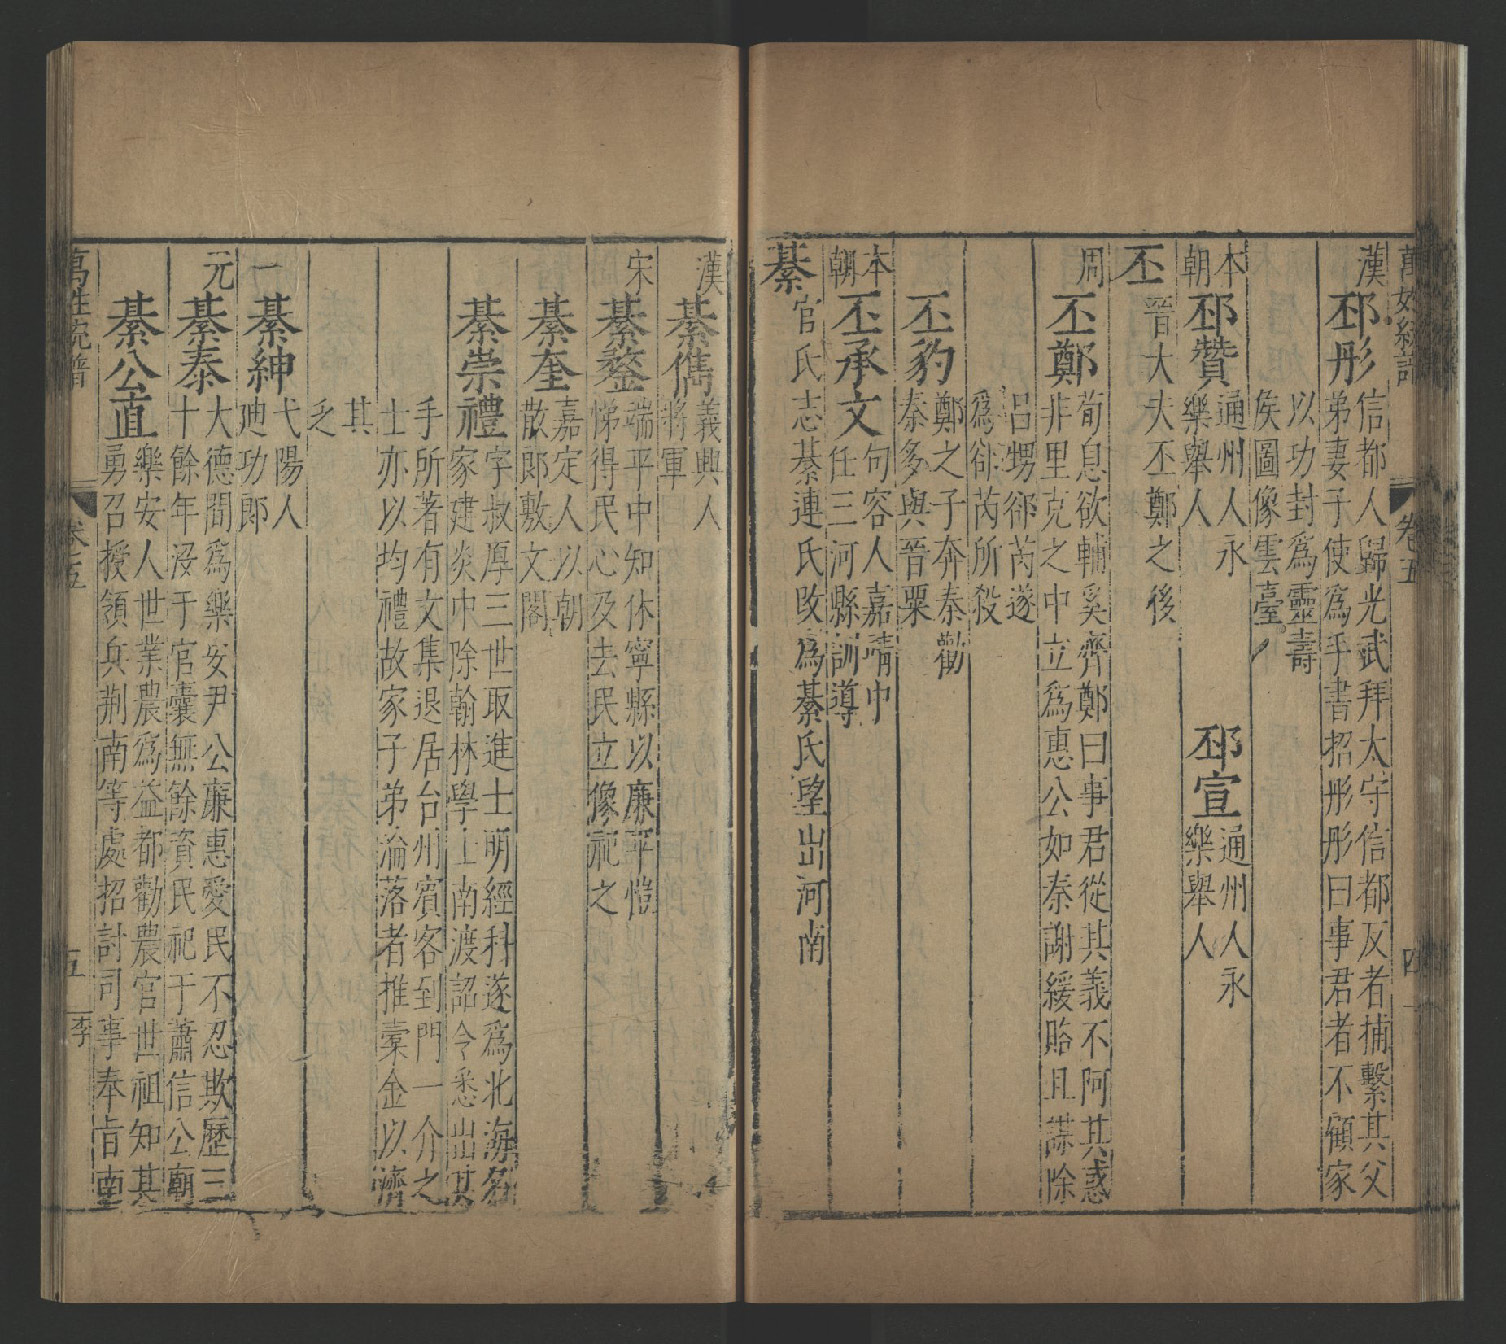 萬姓統譜
卷五
四
漢
邳彤
信都人歸光武拜太守信都反者捕繫其父
弟妻子使為手書招彤彤曰事君者不顧家
以功封為靈壽
侯圖像雲臺
本朝
邳贊
通州人永
樂舉人
邳宣
通州人永
樂舉人
丕
晉大夫丕鄭之後
周
丕鄭
荀息欲輔奚齊鄭曰事君從其義不阿其惑
非里克之中立為惠公如秦謝緩賂且謀除
呂甥郤芮遂
為郤芮所殺
丕豹
鄭之子奔秦勸
秦多與晉粟
本朝
丕承文
句容人嘉靖中
任三河縣訓導
綦
官氏志綦連氏改為綦氏望出河南
漢
綦儁
義興人
將軍
宋
綦鏊
端平中知休寧縣以廉平愷
悌得民心及去民立像祀之
綦奎
嘉定人以朝
散郎敷文閣
綦崇禮
字叔厚三世取進士明經科遂為北海名
家建炎中除翰林學士南渡詔令悉出其
手所著有文集退居台州賓客到門一介之
士亦以均禮故家子弟淪落者推槖金以濟
其
乏
綦紳
弋陽人
迪功郎
元
綦泰
大德間為樂安尹公廉惠愛民不忍欺歷三
十餘年沒于官囊無餘資民祀于蕭信公廟
綦公直
樂安人世業農為益都勸農官世祖知其
勇召授領兵荊南等處招討司事奉旨南
萬姓統譜
卷五
五
李